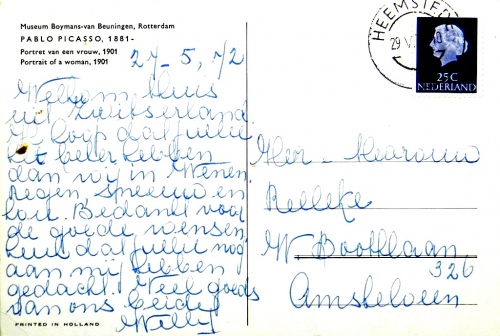 Museum Boymans-van Beuningen, Rotterdam
PABLO PICASSO, 1881-
Portret van een vrouw, 1901
Portrait of a woman, 1901
27-5, '72
Welkom thuis
uit Zwitserland.
Ik hoop dat jullie
het beter hebben
dan wij in Wenen
Regen sneeuw en
kou. Bedankt voor
de goede wensen
leuk dat jullie nog
aan mij hebben
gedacht. Veel goeds
van ons beide
Willy
PRINTED IN HOLLAND
HEEMSTEDE
29 V
25 C
NEDERLAND
Her - Mevrouw
Relleke
W Boothlaan
326
Amstelveen